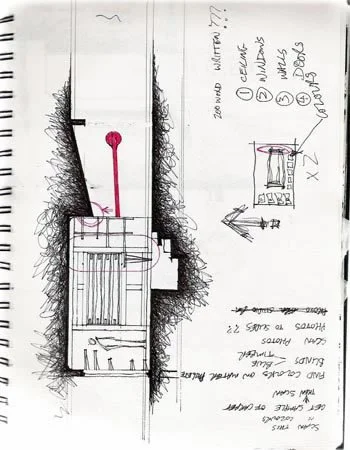 200 WORD WRITTEN ???
① CEILING
② WINDOWS
③ WALLS
④ DOORS
COLOURS
X 2
SCAN THIS
IN COLOUR
GET SAMPLE OF CARPET
THEN SCAN
FIND COLOURS ON WATER
BLINDS BLUE
TIMBER
SCAN PHOTOS
PHOTOS TO SLIDES ??